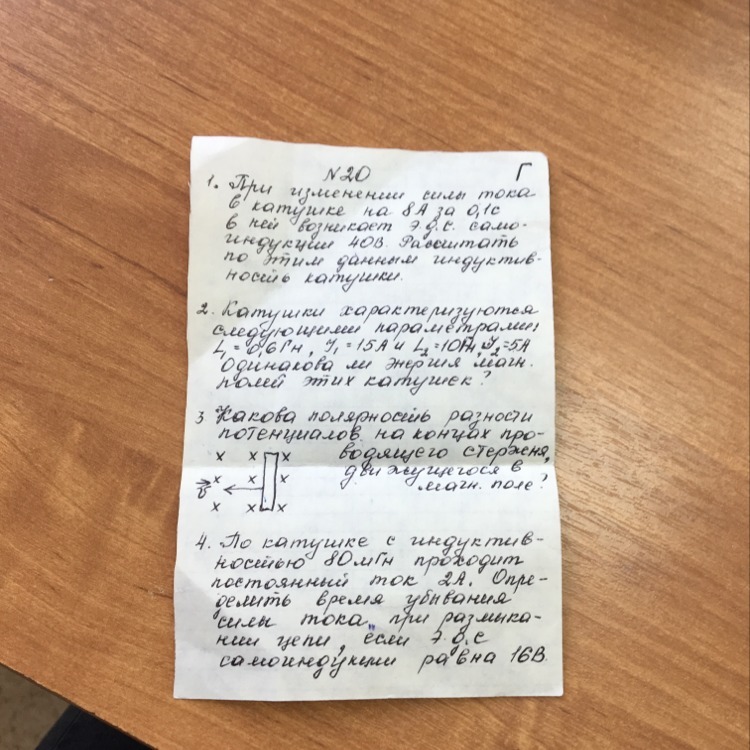 N20 Г
1. При изменении силы тока
в катушке на 8А за 0,1с
в ней возникает э.д.с. само-
индукции 40В. Рассчитать
по этим данным индуктив-
ность катушки.
2. Катушки характеризуются
следующими параметрами:
L₁ = 0,6Гн, J₁ = 15А и L₂ = 10Гн, J₂ = 5А
Одинакова ли энергия магн.
полей этих катушек?
3 Какова полярность разности
потенциалов на концах про-
водящего стержня,
движущегося в
магн. поле?
x x x
x x x
x x x
v
4. По катушке с индуктив-
ностью 80мГн проходит
постоянный ток 2А. Опре-
делить время убывания
силы тока при размыка-
нии цепи, если э.д.с
самоиндукции равна 16В.